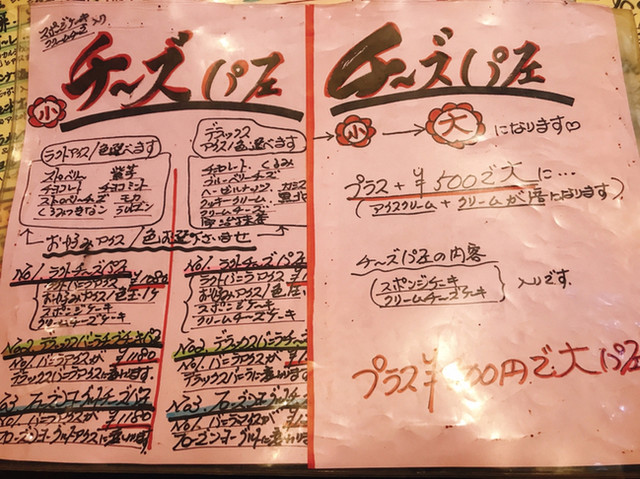 スポンジケーキ入り
クリームチーズ
チーズパフェ
小
ラクトアイス1色選べます
ストロベリー
チョコレート チョコミント
ストロベリーチーズ モカ
くるみきなこ
デラックス
アイス1色選べます
チョコレート くるみ
ブルーベリーチーズ
ヘーゼルナッツ カシス
クッキークリーム
クリームチーズ
お好みアイス1色お選び下さいませ
No1. ラクトチーズパフェ
ラクトバニラアイス ¥1080
お好みアイス1色
スポンジケーキ
クリームチーズケーキ
No2. デラックスバニラチーズケーキパフェ
No1. バニラアイスが ¥1180
デラックスバニラに変ります。
No3. フローズンヨーグルトチーズパフェ
No1. バニラアイスが ¥1180
フローズンヨーグルトアイスに変ります。
No1. ラクトチーズパフェ
ラクトバニラアイス
お好みアイス1色
スポンジケーキ
クリームチーズケーキ
No2. デラックスバニラチーズ
No1. バニラアイスが
デラックスバニラに変ります。
No3. フローズンヨーグルチーズ
No1. バニラアイスが
フローズンヨーグルトに変ります。
チーズパフェ
小→大になります♡
プラス+¥500で大に…
(アイスクリーム+クリームが倍になります)
チーズパフェの内容
スポンジケーキ
クリームチーズケーキ
入りです。
プラス¥500円で大パフェ